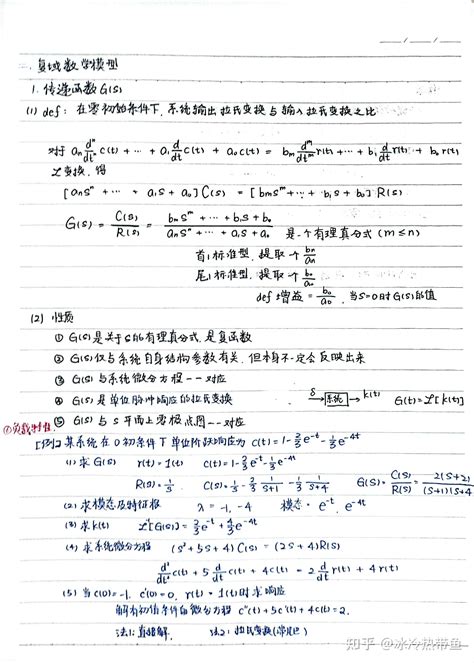 复域数学模型
1. 传递函数 G(s)
(1) def: 在零初始条件下, 系统输出拉氏变换与输入拉氏变换之比
对于 aₙ dⁿ/dtⁿ c(t) + ⋯ + a₁ d/dt c(t) + a₀ c(t) = bₘ dᵐ/dtᵐ r(t) + ⋯ + b₁ d/dt r(t) + b₀ r(t)
ℒ变换, 得
[aₙsⁿ + ⋯ + a₁s + a₀] C(s) = [bₘsᵐ + ⋯ + b₁s + b₀] R(s)
G(s) = C(s)/R(s) = (bₘsᵐ + ⋯ + b₁s + b₀)/(aₙsⁿ + ⋯ + a₁s + a₀) 是一个有理真分式 (m≤n)
首1标准型, 提取一个 bₙ/aₙ
尾1标准型, 提取一个 b₀/a₀
def 增益 = b₀/a₀, 当s=0时G(s)的值
(2) 性质
① G(s)是关于s的有理真分式, 是复函数
② G(s)仅与系统自身结构参数有关, 但本身不一定会反映出来
③ G(s)与系统微分方程一一对应
④ G(s)是单位脉冲响应的拉氏变换 δ → 系统 → k(t) G(t) = ℒ[k(t)]
⑤ G(s)与s平面上零极点图一一对应
①负载特性
[例2] 某系统在0初条件下单位阶跃响应为 c(t) = 1 - 2/3 e⁻ᵗ - 1/3 e⁻⁴ᵗ
(1) 求 G(s) r(t) = 1(t) c(t) = 1 - 2/3 e⁻ᵗ - 1/3 e⁻⁴ᵗ
R(s) = 1/s C(s) = 1/s - 2/3 1/(s+1) - 1/3 1/(s+4) G(s) = C(s)/R(s) = 2(s+2)/(s+1)(s+4
(2) 求模态及特征根 λ = -1, -4 模态: e⁻ᵗ, e⁻⁴ᵗ
(3) 求 k(t) ℒ[G(s)] = 2/3 e⁻ᵗ + 4/3 e⁻⁴ᵗ
(4) 求系统微分方程 (s² + 5s + 4) C(s) = (2s + 4) R(s)
d²/dt² c(t) + 5 d/dt c(t) + 4 c(t) = 2 d/dt r(t) + 4 r(t)
(5) 当 c(0) = -1, c'(0) = 0, r(t) = 1(t) 时求响应
解有初值条件的微分方程 c''(t) + 5c'(t) + 4c(t) = 2,
法1: 直接解. 法2: 拉氏变换
知乎 @冰冷热带鱼